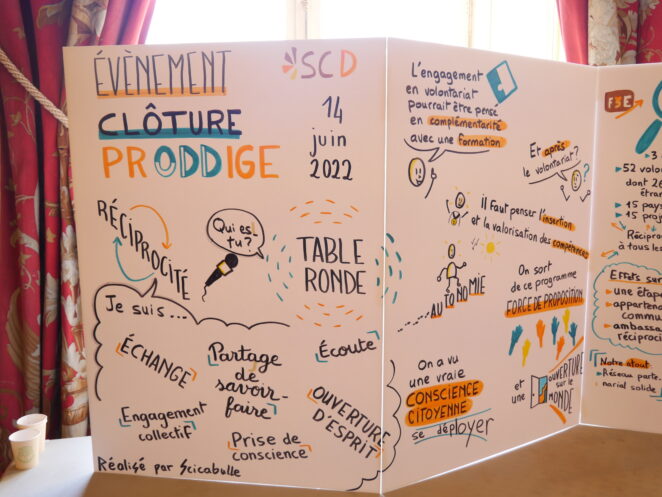 ÉVÈNEMENT
CLÔTURE
PRODDIGE
SCD
14
juin
2022
RÉCIPROCITÉ
Qui es-
tu?
TABLE
RONDE
Je suis...
ÉCHANGE
Partage
de
savoir-
faire
Écoute
Engagement
collectif
Prise de
conscience
OUVERTURE
D'ESPRIT
Réalisé par Scicabulle
L'engagement
en volontariat
pourrait être pensé
en complémentarité
avec une formation
Et après
le volontariat?
?
Il faut penser l'insertion
et la valorisation des compétences
AUTONOMIE
On sort
de ce programme
FORCE DE PROPOSITION
On a vu
une vraie
CONSCIENCE
CITOYENNE
se déployer
et
une
OUVERTURE
sur le
MONDE
F3E
3
52
15 pays
15
à tous les
Effets sur
une étape
Notre atout
Réseau
narial solide